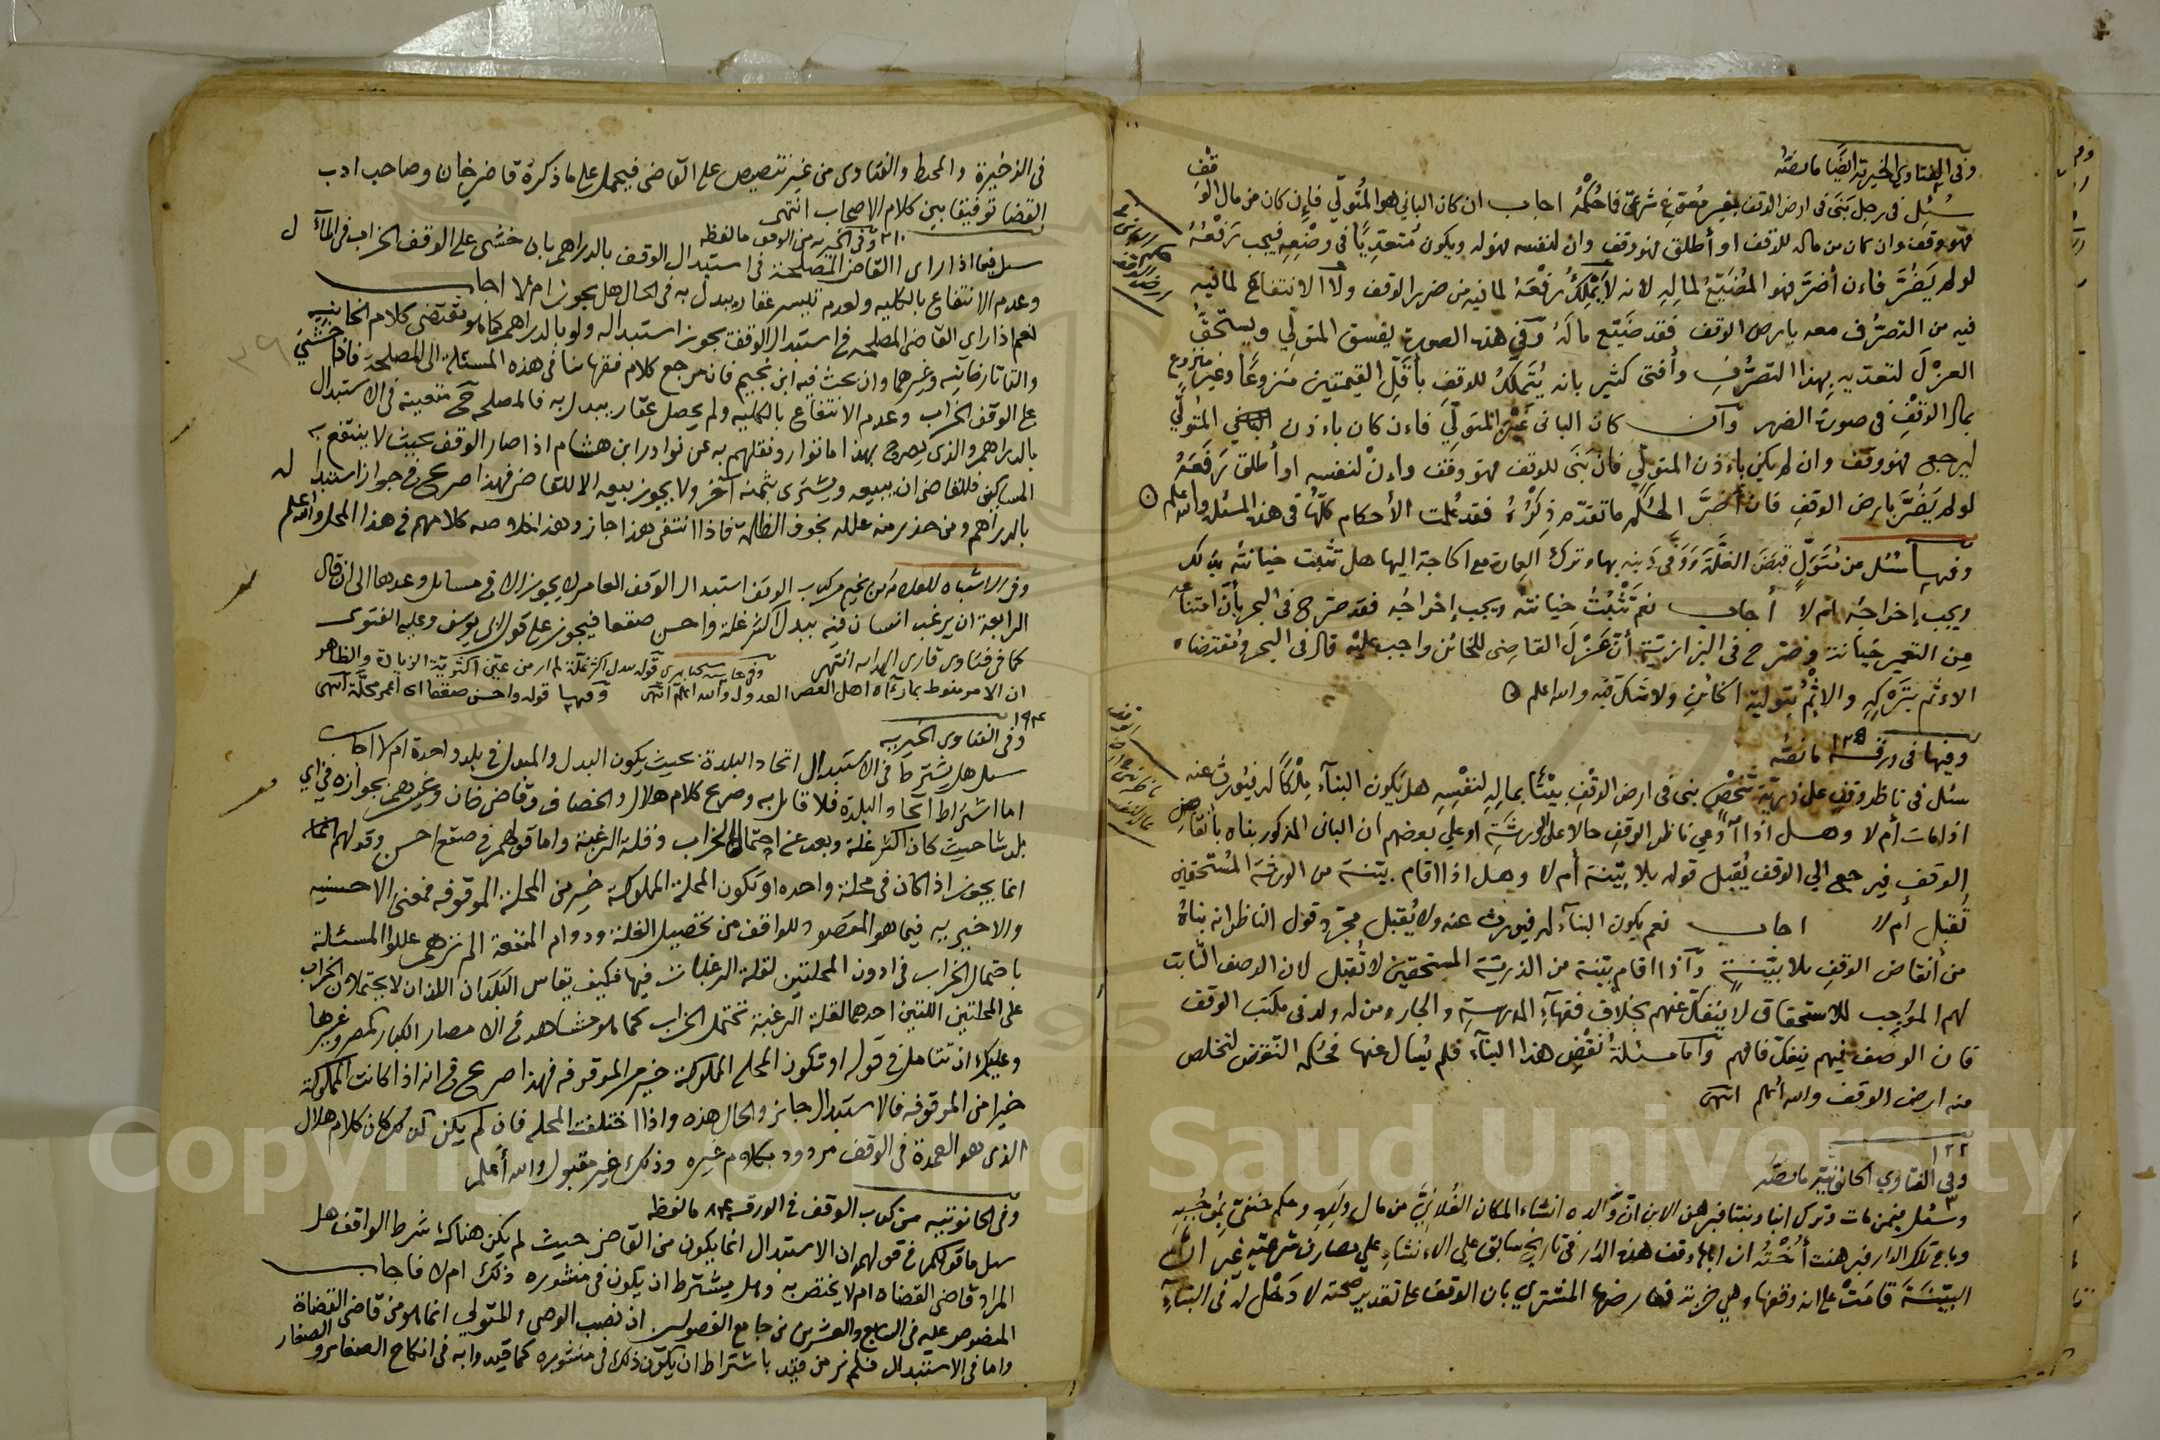 وفي الفتاوي الخيرية ايضًا ما نصّه
سُئِل في رجل بَنَى في ارض الوقف بغير مُسَوِّغ شرعيّ فما حُكْمُهُ اجاب ان كان الباني هو المُتَولّي فإن كان من مال الوقف
فهو وقف وان كان من ماله للوقف او أطلق فهو وقف وان لنفسه فهو له ويكون مُتعدِّيًا في وضْعِهِ فيجب رَفْعُهُ
لو لم يَضُرَّ فاءن أضَرَّ فهو المُضَيِّعُ لمالِهِ لانه لا يَمْلِكُ رفْعَهُ لما فيه من ضرر الوقف ولا الانتفاع لما فيه
فيه من التصرُّف معه بارض الوقف فقد ضَيَّع مالَهُ وفي هذه الصورة يفسق المتولّي ويستحقُّ
العزْلَ لتعدّيه بهذا التصرُّفِ وأفتى كثير بانه يُتَملّكُ للوقفِ بأقلّ القيمتين منزوعًا وغير منزوع
بمال الوَقْفِ في صورة الضرر وان كان الباني غَيْرَ المتولّي فاءن كان باءذن المُتولّي
ليرجع فهو وقف وان لم يكن باءذن المتولّي فان بَنَى للوقف فهو وقف واءنْ لنفسه او أطلق رَفَعَهُ
لو لم يَضُرَّ بارض الوقفِ فان أضَرَّ الحُكم ما تقدّم ذِكْرُهُ فقد عُلمت الأحكام كلّها في هذه المسئلة والله اعلم
وفيها سُئل من مُتَوَلٍّ قبَضَ الغَلَّةَ وَوَفَّى دَينه بها وترك العمارة مع الحاجة اليها هل تثبت خيانتُه بذلك
ويجب إخراجُه ام لا أجاب نعم تَثْبُتُ خيانتُه ويجب إخراجُه فقد صرّح في البحر بأن امتناعه
مِن التعمير خيانة وصَرّح في البزازيّة أنّ عَزْلَ القاضي للخائن واجب عليه قال في البحر ومُقتضاه
الاءثم بتَركِهِ والإثم بتولية الخائن ولا شكّ فيه والله اعلم
وفيها في ورقة ١٣٥ ما نصّه
سئل في ناظر وقف على ذرية شخْصٍ بنى في ارض الوَقْفِ بَيْتًا بمالِهِ لنفْسِهِ هل يَكون البنآء مِلْكًا له فيُورثَ عنه
اذا مات أم لا وهل اذا ادّعى ناظر الوقفِ حالًا على الورثَةِ او على بعضهم ان الباني المذكور بناه بأنقاضِ
الوقف فيرجع الي الوقف يُقبل قوله بلا بيّنة أم لا وهل اذا اقام بيّنَة من الورثَة المُستحقين
تُقبل أم لا اجاب نعم يكون البنآءُ له فيورث عنه ولا يُقبل مجرّد قول الناظر انه بناهُ
من أنقاض الوقفِ بلا بيّنةٍ واذا اقام بيّنة من الذريّة المستحقين لا تُقبل لان الوصف الثّابت
لهم الموُجب للاستحقاق لا ينفكّ عنهم بخلاف فقهآءِ المدرسةِ والجارِ ومن له ولد في مكتب الوقف
فان الوصف فيهم ينفكّ فافهم وأما مسئلةُ نقْضِ هذا البنآء فلم يُسأل عنها فحُكمه النّقض لتخلص
منه ارض الوقف والله أعلم انتهى
١٢٢
وفي الفتاوي الحانوتية ما نصّه
وسُئل فيمن مات وترك ابنًا وبنتًا فبرهن الابن انّ وَالده انشاء المكان الفُلانيَّ من مال وَلَدِه وحكم حنفيّ بمُوجَبِهِ
وباع تلك الدار فبرهنت أُخْتُهُ ان اباها وقف هذه الدّار في تاريخ سابق على الاءنشاءِ على مصارف شرعيّةٍ غير انّ
البيّنَةَ قامَتْ على انه وقفها وهي خربة فعارضها المشتري بان الوقف على تقدير صحّته لا دَخْل له في البنآءِ
في الذخيرة والمحيط والفتاوى من غير تنصيص على القاضي فيحمل على ما ذكره قاضي خان وصاحب ادب
القضا توفيقا بين كلام الاصحاب انتهى
وفي الخيرية من الوقف ما لفظه
سئل فيما اذا راى القاضي المصلحة في استبدال الوقف بالدراهم بان خشى على الوقف الخراب في المآل
وعدم الانتفاع بالكليه ولعدم تيسر عقار يبدل به في الحال هل يجوز ام لا اجاب
نعم اذا راى القاضي المصلحه في استبدال الوقف يجوز استبداله ولو بالدراهم كما هو مقتضى كلام الخانيه
والتاتارخانيه وغيرهما وان بحث فيه ابن نجيم فان مرجع كلام فقهائنا في هذه المسئلة الى المصلحة فاذا خشي
على الوقف الخراب وعدم الانتفاع بالكليه ولم يحصل عقار يبدل به فالمصلحة ح متعينة في الاستبدال
بالدراهم والذي يصرح بهذا ما توارد نقلهم به عن نوادر ابن هشام اذا صار الوقف بحيث لا ينتفع به
المساكين فللقاضي ان يبيعه ويشتري بثمنه آخر ولا يجوز بيعه الا للقاضي فهذا صريح في جواز استبداله
بالدراهم ومن حذر منه علله بخوف الظلمة فاذا انتفى هذا جاز وهذا خلاصه كلامهم في هذا المحل والله اعلم
وفي الاشباه للعلامه ابن نجيم من كتاب الوقف استبدال الوقف العامر لا يجوز الا في مسائل وعدها الى ان قال
الرابعة ان يرغب انسان فيه ببدل اكثر غلة واحسن صقعا فيجوز على قول ابي يوسف وعليه الفتوى
كما في فتاوى قاري الهدايه انتهى
ان الامر منوط بما رآه اهل الفضل العدول والله اعلم انتهى وفيها قوله واحسن صقعا اى اعمر محلّة انتهى
وفي الفتاوى الخيريه
سئل هل يشترط في الاستبدال اتحاد البلدة بحيث يكون البدل والمبدل في بلد واحدة ام لا اجاب
اما اشتراط اتحاد البلدة فلا قائل به وصريح كلام هلال والخصاف وقاضي خان وغيرهم بجوازه في اي
بلد شا حيث كان اكثر غلة وبعد عن احتمال الخراب وقلة الرغبة واما قولهم في صقع احسن وقولهم انما
انما يجوز اذا كان في محلة واحده او تكون المحلة المملوكة خير من المحلة الموقوفه فمعنى الاحسنيه
والاخيريه فيما هو المقصود للواقف من تحصيل الغلة ودوام المنفعة الم ترهم عللوا المسئلة
باحتمال الخراب في ادون المحلتين لقلة الرغبات فيها فكيف يقاس البلدان اللذان لا يحتملان الخراب
على المحلتين اللتين احدهما لقلة الرغبة تحتمل الخراب كما هو مشاهد في الامصار الكبار كمصر وغيرها
وعليك ان تتامل في قوله او تكون المحله المملوكة خير من الموقوفه فهذا صريح في انه اذا كانت المملوكة
خيرا من الموقوفه فالاستبدال جائز والحال هذه واذا اختلفت المحله فان لم يكن كذلك كان كلام هلال
الذي هو العمدة في الوقف مردود بكلام غيره وذلك غير مقبول والله أعلم
وفي الحانوتيه من كتاب الوقف في الورقه ٨٣ ما لفظه
سئل ما قولكم في قولهم ان الاستبدال انما يكون من القاضي حيث لم يكن هناك شرط الواقف هل
المراد قاضي القضاه ام لا يختص به وهل يشترط ان يكون في منشوره ذلك ام لا فاجاب
المنصوص عليه في السابع والعشرين من جامع الفصولين ان نصب الوصي والمتولي انما هو من قاضي القضاة
واما في الاستبدال فلم نر من قيد باشتراط ان يكون ذلك في منشوره كما قيدوا به في انكاح الصغائر والصغار
Copyright © King Saud University